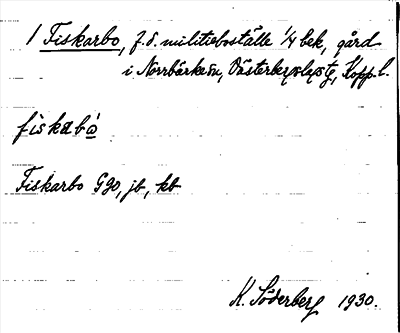 1 Fiskarbo, f.d. militieboställe 1/4 bek, gård
i Norrbärkesn, Västerbergslagstg, Kopp.l.
fiskabò
Fiskarbo G90, jb, kb
K. Söderberg 1930.